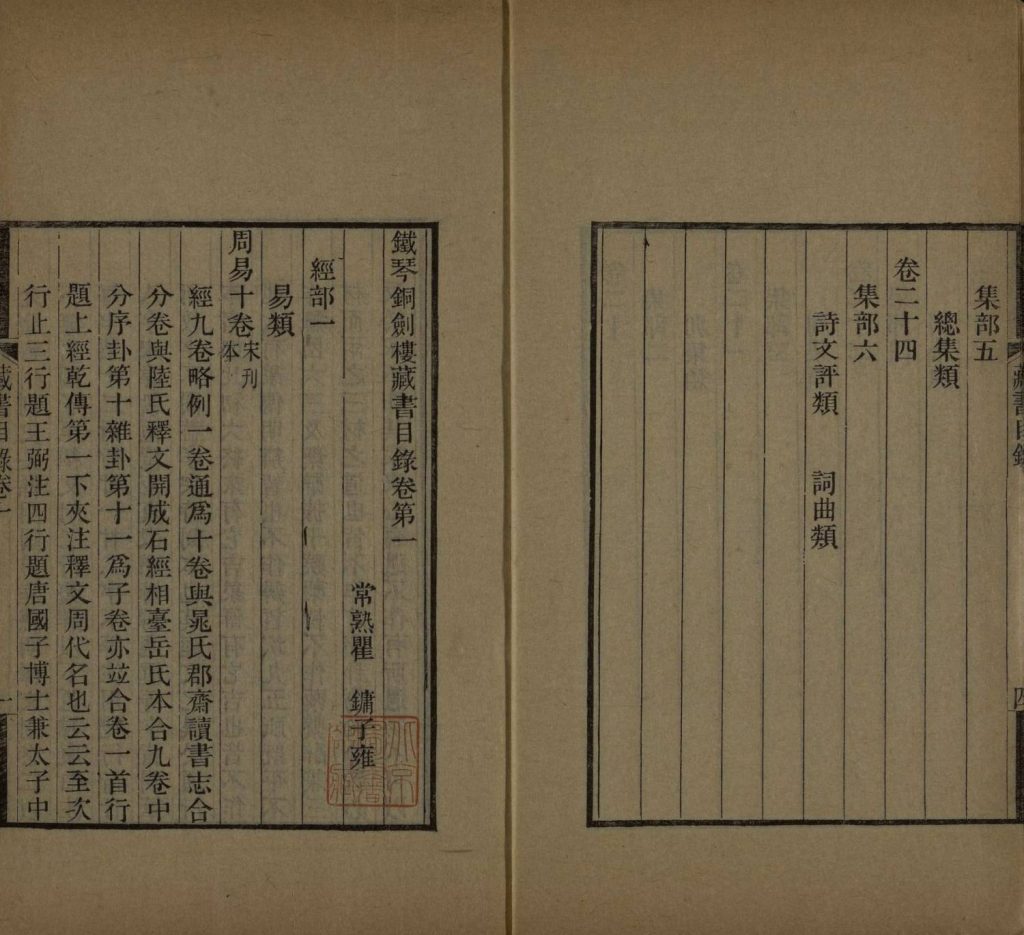 集部五
總集類
卷二十四
集部六
詩文評類 詞曲類
鐵琴銅劍樓藏書目錄卷第一
常熟瞿 鏞子雍
經部一
易類
周易十卷宋刊本
經九卷略例一卷通爲十卷與晁氏郡齋讀書志合
分卷與陸氏釋文開成石經相臺岳氏本合九卷中
分序卦第十雜卦第十一爲子卷亦竝合卷一首行
題上經乾傳第一下夾注釋文周代名也云云至次
行止三行題王弼注四行題唐國子博士兼太子中